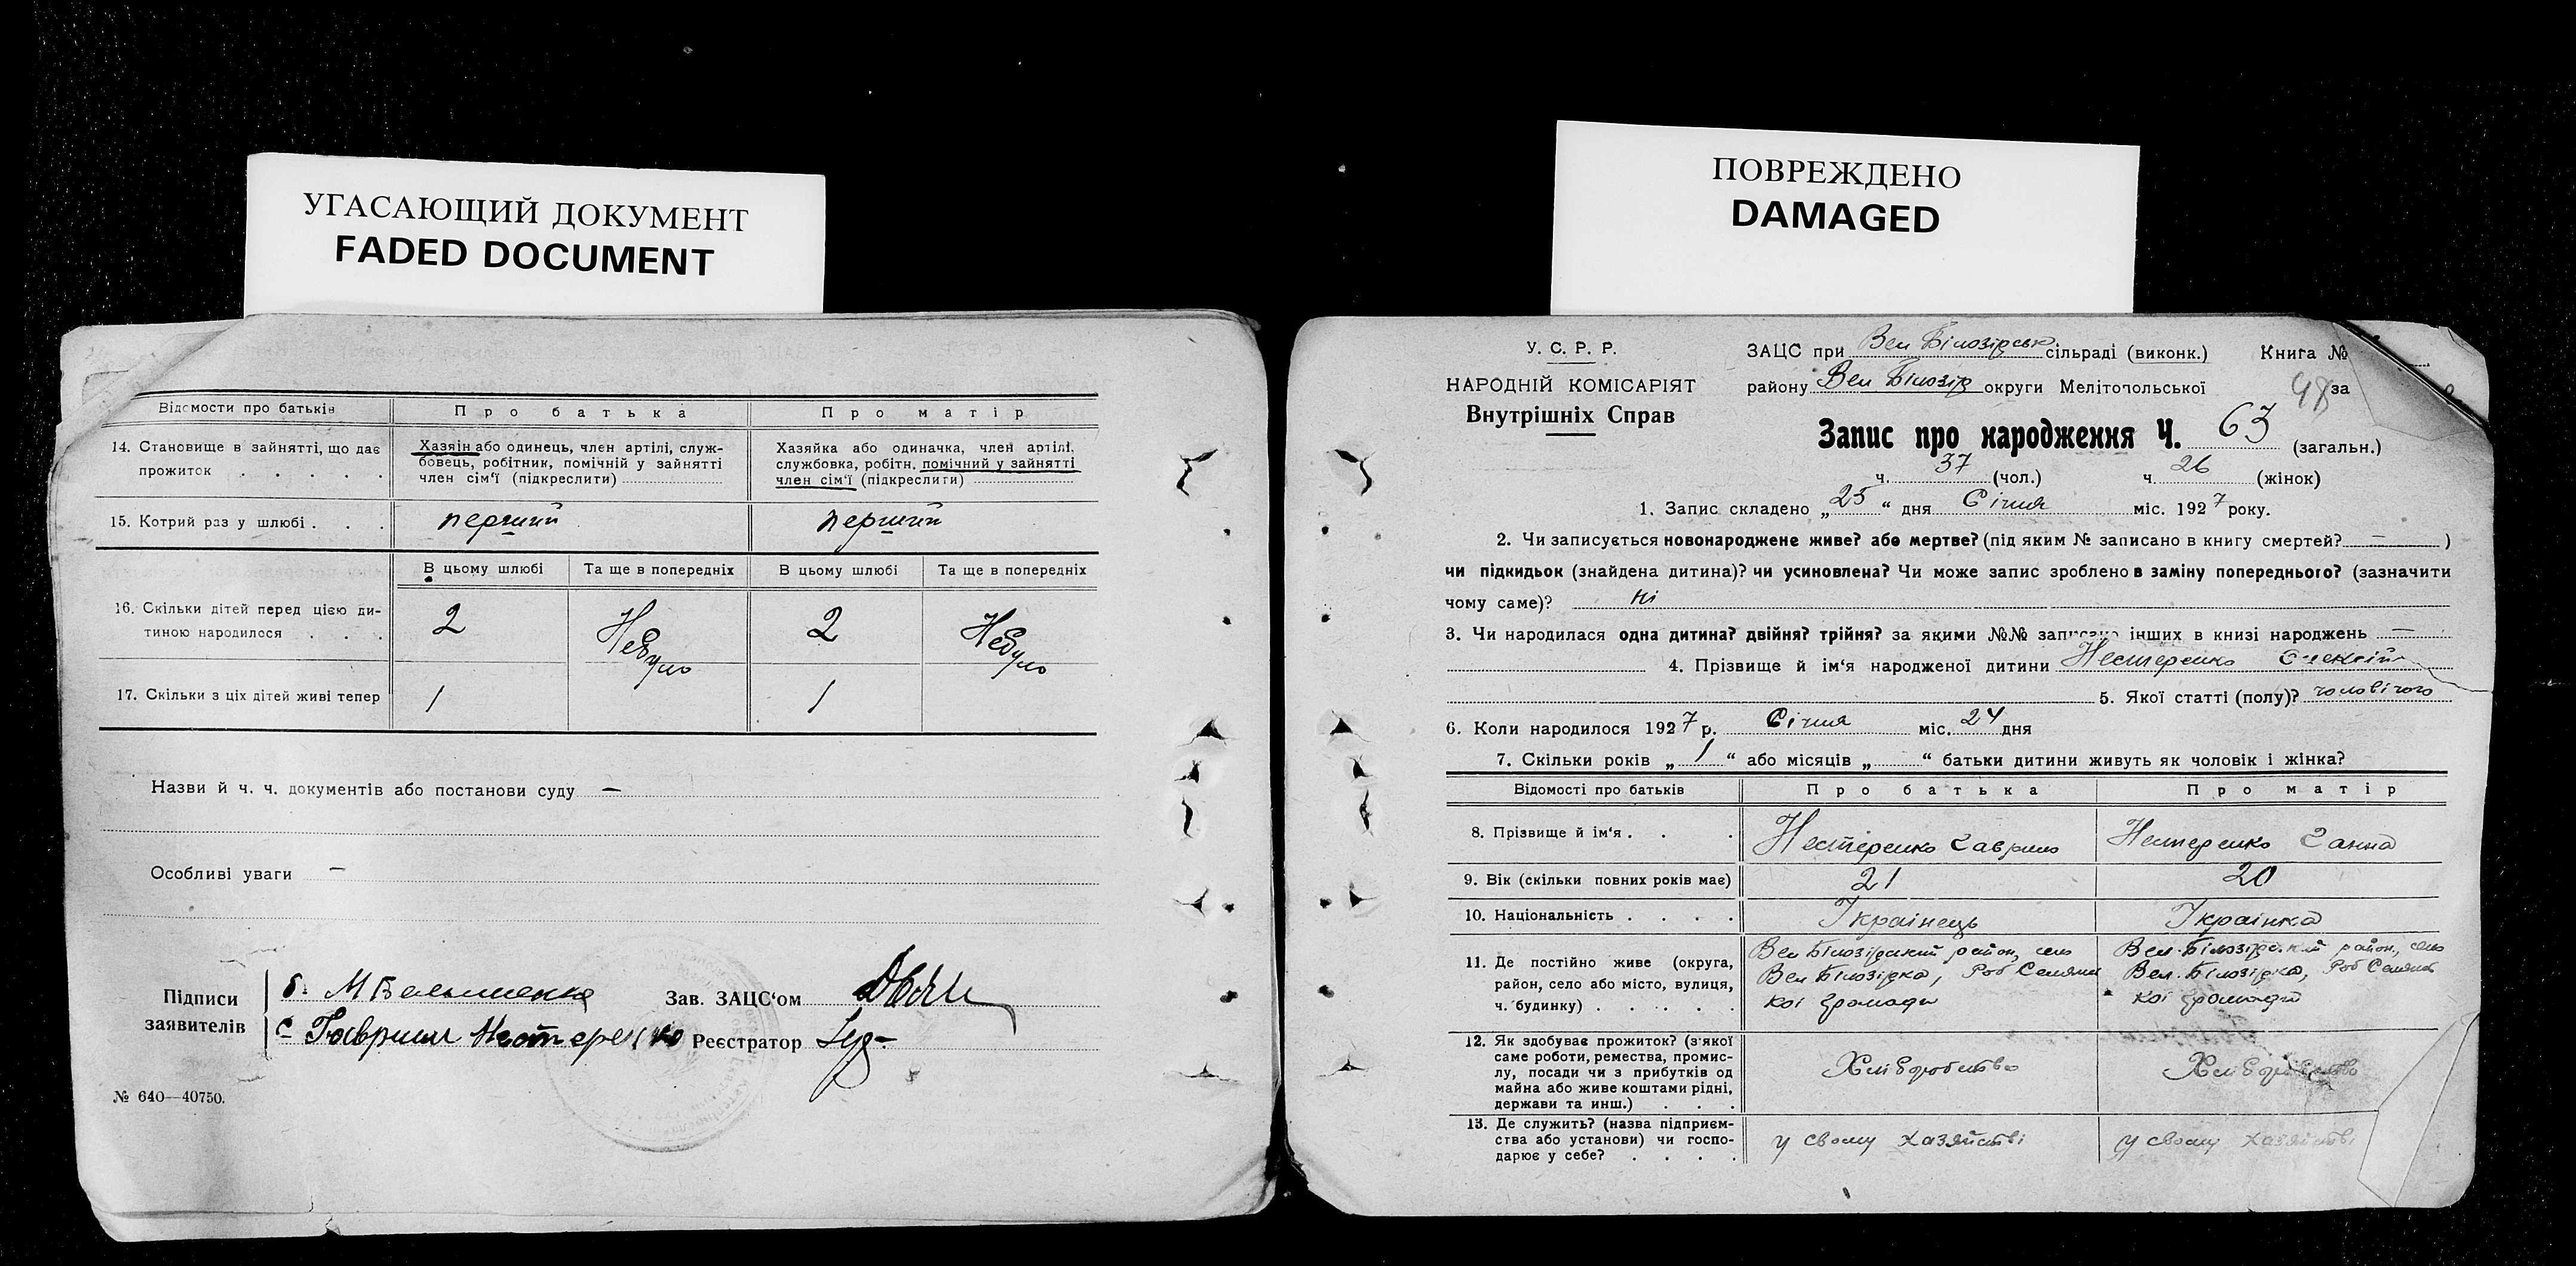 УГАСАЮЩИЙ ДОКУМЕНТ
FADED DOCUMENT
Відомости про батьків
Про батька
Про матір
14. Становище в зайнятті, що дає
прожиток . . . . .
Хазяїн або одинець, член артілі, служ-
бовець, робітник, помічній у зайнятті
член сім'ї (підкреслити)
Хазяйка або одиначка, член артілі,
службовка, робітн. помічний у зайнятті
член сім'ї (підкреслити)
15. Котрий раз у шлюбі . . .
перший
перший
В цьому шлюбі
Та ще в попередніх
В цьому шлюбі
Та ще в попередніх
16. Скільки дітей перед цією ди-
тиною народилося . . .
2
Небуло
2
Небуло
17. Скільки з ціх дітей живі тепер
1
1
Назви й ч. ч. документів або постанови суду —
Особливі уваги —
Підписи
заявителів
б.
Зав. ЗАЦС'ом
с Гавриил Нестеренко
Реєстратор
№ 640—40750.
ПОВРЕЖДЕНО
DAMAGED
У. С. Р. Р.
НАРОДНІЙ КОМІСАРІЯТ
Внутрішніх Справ
ЗАЦС при Вел Білозірськ сільраді (виконк.) Книга №
району Вел Білозір округи Мелітопольської 48 за
Запис про народження Ч. 63 (загальн.)
ч. 37 (чол.) ч. 26 (жінок)
1. Запис складено „ 25 “ дня Січня міс. 1927 року.
2. Чи записується новонароджене живе? або мертве? (під яким № записано в книгу смертей? — )
чи підкидьок (знайдена дитина)? чи усиновлена? Чи може запис зроблено в заміну попереднього? (зазначити
чому саме)? ні
3. Чи народилася одна дитина? двійня? трійня? за якими №№ записано інших в книзі народжень —
4. Прізвище й ім'я народженої дитини Нестеренко Олексій
5. Якої статті (полу)? чоловічого
6. Коли народилося 1927 р. Січня міс. 24 дня
7. Скільки років „ 1 “ або місяців „ “ батьки дитини живуть як чоловік і жінка?
Відомості про батьків
Про батька
Про матір
8. Прізвище й ім'я . . .
Нестеренко Гаврило
Нестеренко Ганна
9. Вік (скільки повних років має)
21
20
10. Національність . . . .
Українець
Українка
11. Де постійно живе (округа,
район, село або місто, вулиця,
ч. будинку) . . . . .
Вел Білозірський район, село
Вел Білозірка, Роб Селянс
кої громади
Вел. Білозірський район, село
Вел. Білозірка, Роб Селянс
кої громади
12. Як здобуває прожиток? (з'якої
саме роботи, ремества, промис-
лу, посади чи з прибутків од
майна або живе коштами рідні,
держави та инш.) . . .
Хліборобство
Хліборобство
13. Де служить? (назва підприєм-
ства або установи) чи госпо-
дарює у себе? . . . .
у свому хазяйстві
у свому хазяйстві